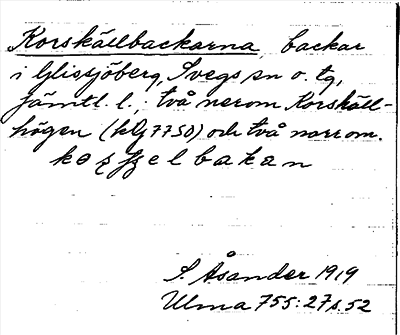 Korskällbackarna, backar
i Glissjöberg, Svegs sn o. tg,
Jämtl. l., : två nerom Korskäll-
högen (kQ 7750) och två norrom.
S. Åsander 1919
Ulma 755:27 s. 52